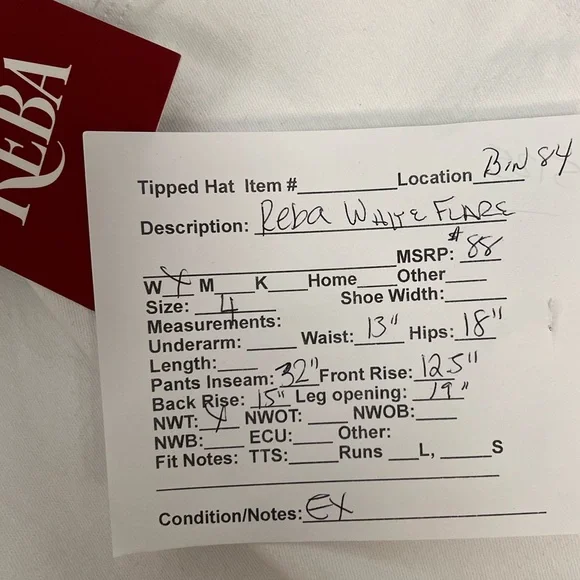 REBA
Tipped Hat Item #__________ Location Bin 84
Description: Reba White Flare
MSRP: $88
W X M____K____Home____Other____
Size: 4 Shoe Width:______
Measurements:
Underarm: _____ Waist: 13" Hips: 18"
Length:____
Pants Inseam: 32" Front Rise: 12.5"
Back Rise: 15" Leg opening: 19"
NWT: X NWOT: ____ NWOB:____
NWB:____ ECU:____ Other:
Fit Notes: TTS:_____ Runs ___L, _____S
Condition/Notes: EX